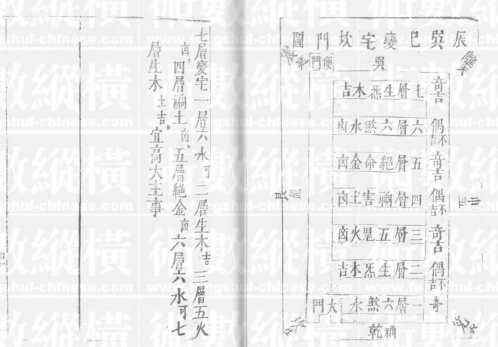 辰巽巳變宅坎門圖
巽
便門
奇吉
七層生炁木吉
偶不吉
六層六煞水凶
奇吉
五層絕命金凶
偶不吉
四層禍害土凶
奇吉
三層五鬼火凶
偶不吉
二層生炁木吉
奇
一層六煞水
大門
乾
七層變宅一層六水可二層生木吉三層五火
凶四層禍土凶五層絕金凶六層六水可七
層生木土吉宜高大主事